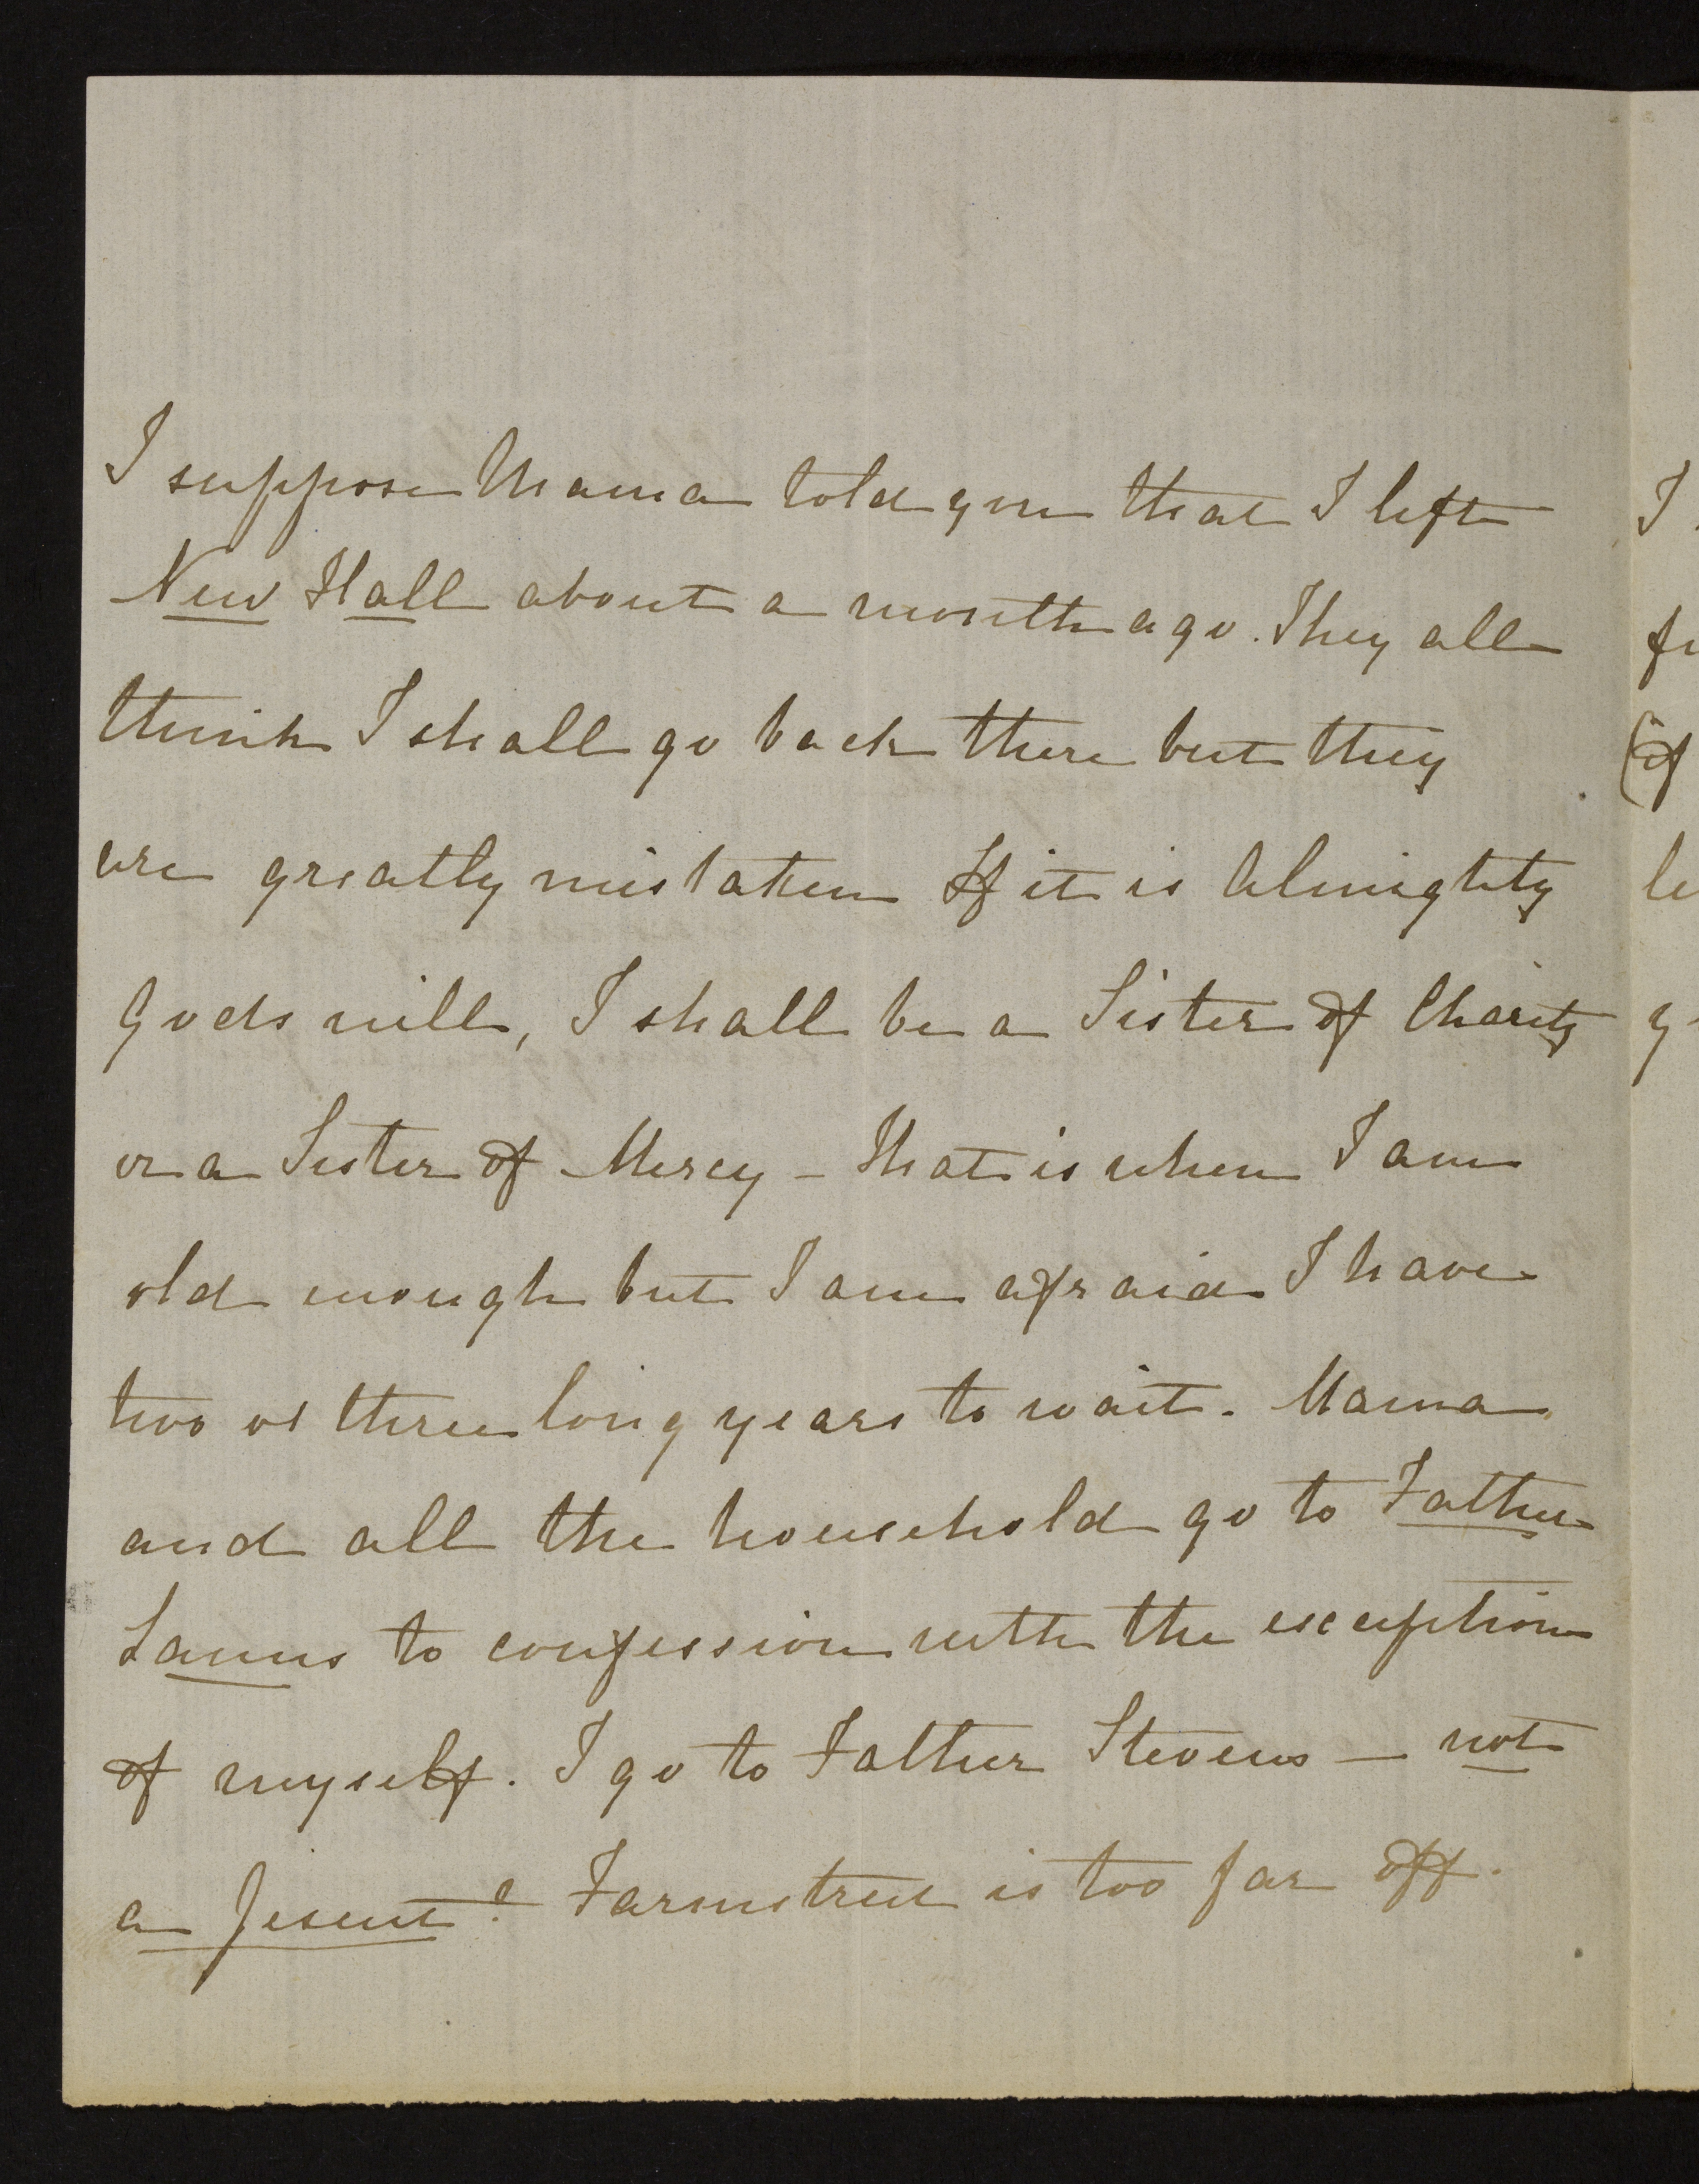 I suppose Mama told you that I left
New Hall about a month ago. They all
think I shall go back there but they
are greatly mistaken If it is Almighty
Gods will, I shall be a Sister of Charity
or a Sister of Mercy - that is when I am
old enough but I am afraid I have
two or three long years to wait. Mama
and all the household go to Father
to confession with the exception
of myself. I go to Father Stevens — not
a Jesuit! Farmstreet is too far off.